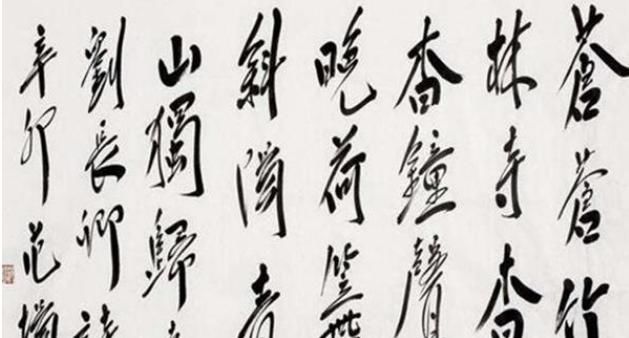 蒼蒼竹
林寺杳
杳鐘聲
晚荷笠
斜陽青
山獨歸
劉長卿詩
辛卯范